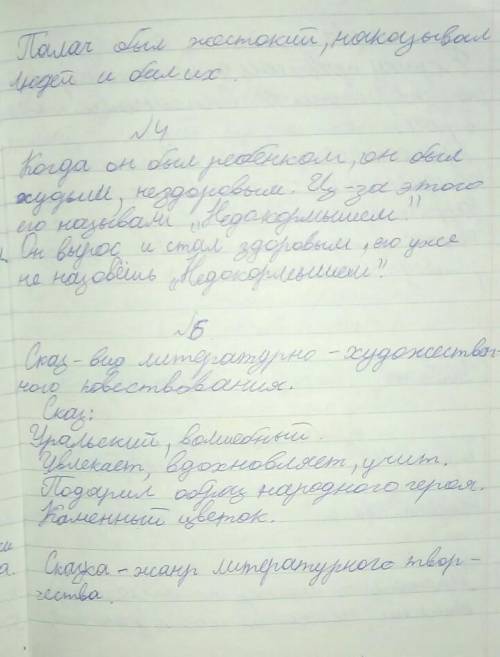 Палач был жестокий, наказывал
людей и бил их.
№4
Когда он был ребёнком, он был
худым, нездоровым. Из-за этого
его называли "Недокормышем".
Он вырос и стал здоровым, его уже
не назовёшь "Недокормышем".
№5
Сказ - вид литературно-художествен-
ного повествования.
Сказ:
Уральский, волшебный.
Увлекает, вдохновляет, учит.
Подарил образ народного героя.
Каменный цветок.
Сказка - жанр литературного твор-
чества.